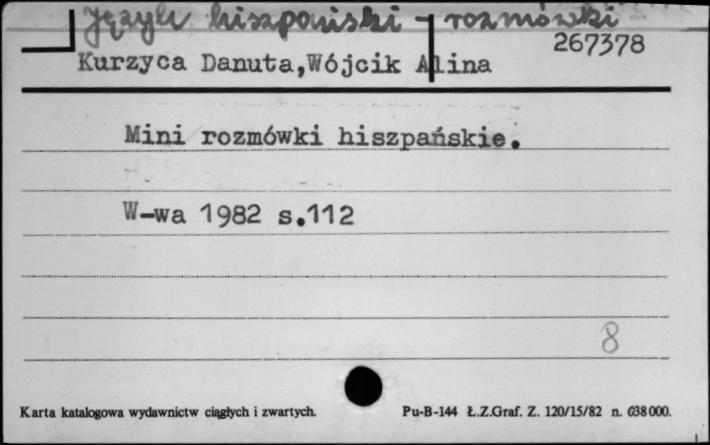 Język hiszpański - rozmówki
267378
Kurzyca Danuta,Wójcik Alina
Mini rozmówki hiszpańskie.
W-wa 1982 s.112
8
Karta katalogowa wydawnictw ciągłych i zwartych. Pu-B-144 Ł.Z.Graf. Z. 120/15/82 n. 638000.